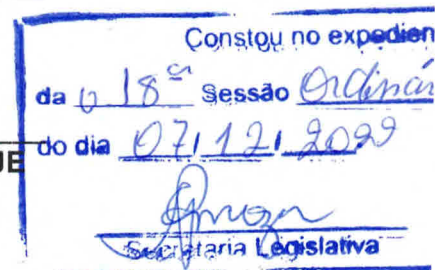 Constou no expedien
da 18ª Sessão Ordinár
do dia 07/12/2022
UE
Secretaria Legislativa